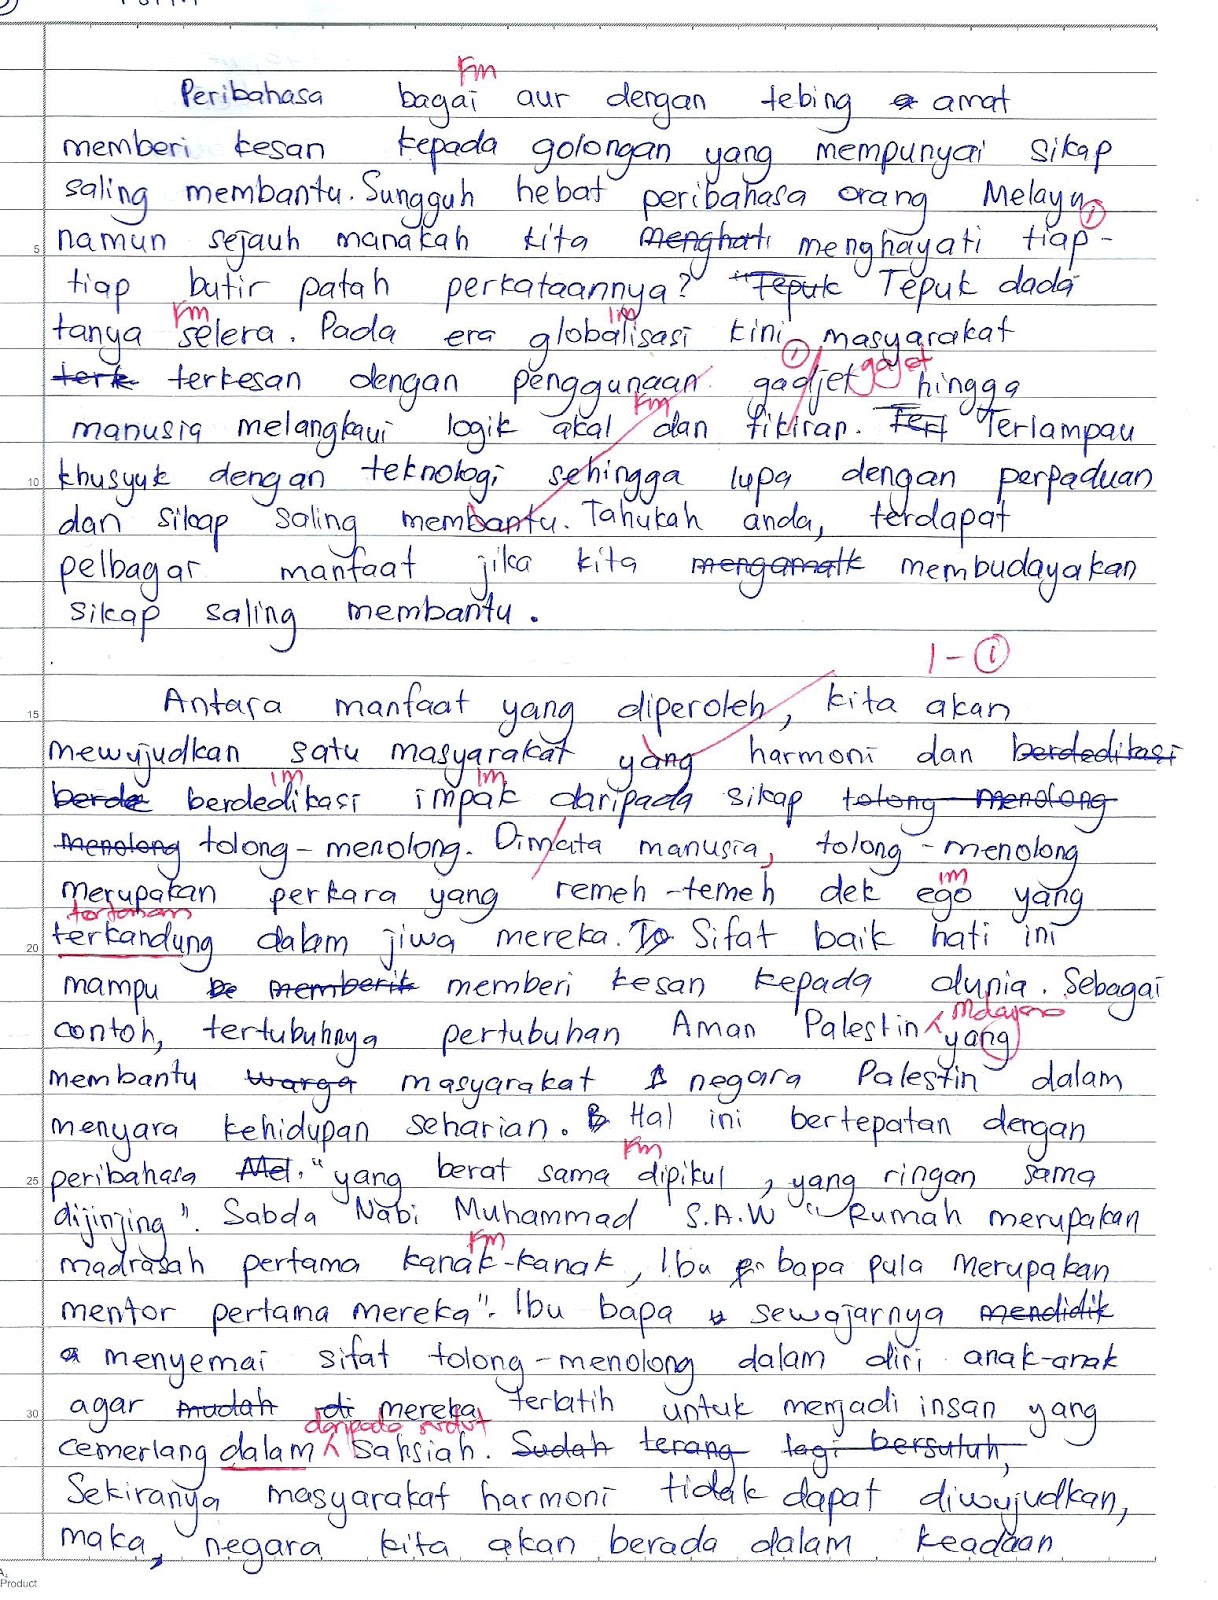 Fm
Peribahasa bagai aur dengan tebing a amat
memberi kesan kepada golongan yang mempunyai sikap
saling membantu. Sungguh hebat peribahasa orang Melayu
1
5 namun sejauh manakah kita menghati menghayati tiap-
tiap butir patah perkataannya? "Tepuk Tepuk dada
Fm Im
tanya selera. Pada era globalisasi kini, masyarakat
1 gajet
terk terkesan dengan penggunaan gadjet hingga
Fm
manusia melangkaui logik akal dan fikiran. Terlampau
10 khusyuk dengan teknologi sehingga lupa dengan perpaduan
dan sikap saling membantu. Tahukah anda, terdapat
pelbagai manfaat jika kita mengamalk membudayakan
sikap saling membantu.
1 - 1
15 Antara manfaat yang diperoleh, kita akan
mewujudkan satu masyarakat yang harmoni dan berdedikasi
Im Im
berde berdedikasi impak daripada sikap tolong menolong
menolong tolong-menolong. Dimata manusia, tolong-menolong
Im
merupakan perkara yang remeh-temeh dek ego yang
tertanam
20 terkandung dalam jiwa mereka. To Sifat baik hati ini
mampu be memberik memberi kesan kepada dunia. Sebagai
Malaysia
contoh, tertubuhnya pertubuhan Aman Palestin yang
membantu warga masyarakat negara Palestin dalam
menyara kehidupan seharian. B Hal ini bertepatan dengan
Fm
25 peribahasa Mel. "yang berat sama dipikul, yang ringan sama
dijinjing". Sabda Nabi Muhammad S.A.W "Rumah merupakan
Fm
madrasah pertama kanak-kanak, Ibu bapa pula merupakan
mentor pertama mereka". Ibu bapa sewajarnya mendidik
a menyemai sifat tolong-menolong dalam diri anak-anak
30 agar mudah di mereka terlatih untuk menjadi insan yang
daripada sudut
cemerlang dalam sahsiah. Sudah terang lagi bersuluh,
Sekiranya masyarakat harmoni tidak dapat diwujudkan,
maka, negara kita akan berada dalam keadaan
Product